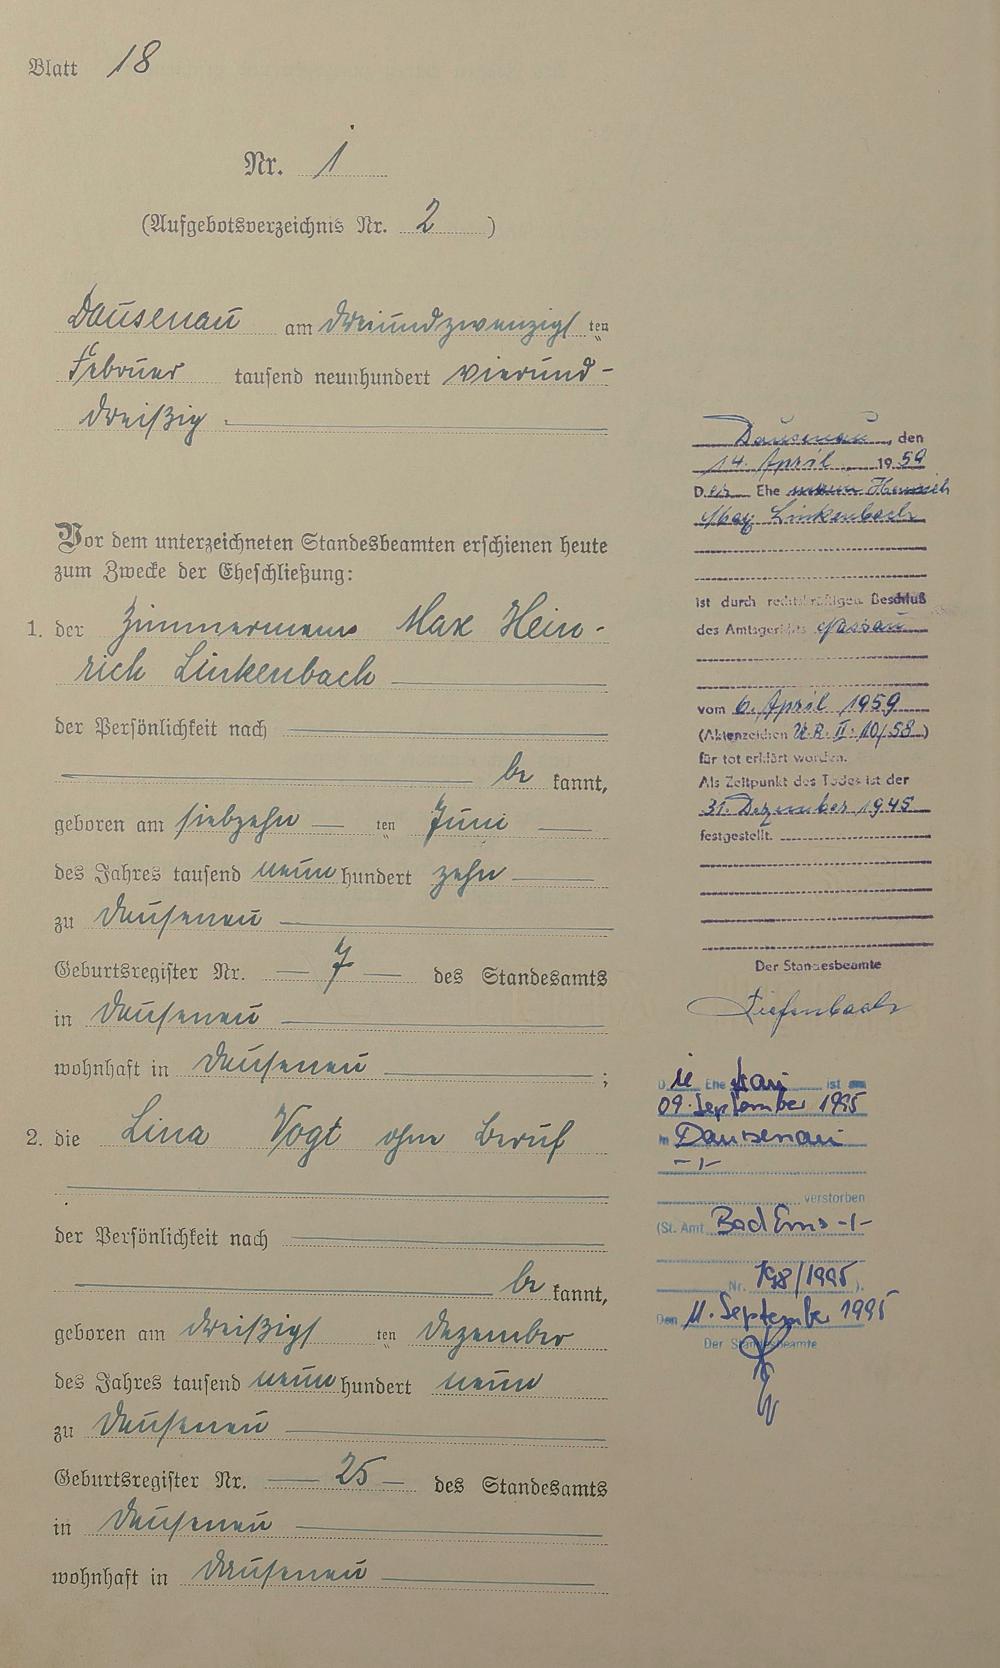 Blatt 18
Nr. 1
(Aufgebotsverzeichnis Nr. 2)
Dausenau am dreiundzwanzigsten
Februar tausend neunhundert vierund-
dreißig
Vor dem unterzeichneten Standesbeamten erschienen heute
zum Zwecke der Eheschließung:
1. der Zimmermann Max Hein-
rich Linkenbach
der Persönlichkeit nach
be kannt,
geboren am siebzehn ten Juni
des Jahres tausend neun hundert zehn
zu Dausenau
Geburtsregister Nr. 7 des Standesamts
in Dausenau
wohnhaft in Dausenau ;
2. die Lina Vogt ohne Beruf
der Persönlichkeit nach
be kannt,
geboren am dreißigsten Dezember
des Jahres tausend neun hundert neun
zu Dausenau
Geburtsregister Nr. 25 des Standesamts
in Dausenau
wohnhaft in Dausenau
Dausenau, den
14. April 1959
Der Ehemann Heinrich
Max Linkenbach
ist durch rechtskräftigen Beschluß
des Amtsgerichts Nassau
vom 6. April 1959
(Aktenzeichen U.R. II. 10/58)
für tot erklärt worden.
Als Zeitpunkt des Todes ist der
31. Dezember 1945
festgestellt.
Der Standesbeamte
Tiefenbach
Die Ehefrau ist am
09. September 1995
in Dausenau
-/-
verstorben
(St. Amt Bad Ems -/-
Nr. 198/1995).
Den 11. September 1995
Der Standesbeamte